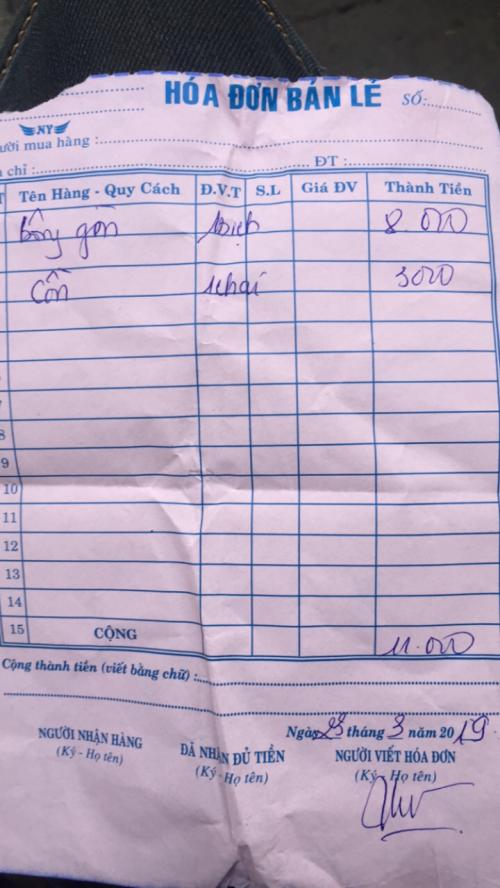 HÓA ĐƠN BÁN LẺ SỐ:
NY
ười mua hàng :
chỉ : ĐT :
T Tên Hàng - Quy Cách Đ.V.T S.L Giá ĐV Thành Tiền
bông gòn 1bịch 8.000
Cồn 1chai 3000
8
9
10
11
12
13
14
15 CỘNG 11.000
Cộng thành tiền (viết bằng chữ) :
Ngày 25 tháng 3 năm 2019
NGƯỜI NHẬN HÀNG ĐÃ NHẬN ĐỦ TIỀN NGƯỜI VIẾT HÓA ĐƠN
(Ký - Họ tên) (Ký - Họ tên) (Ký - Họ tên)